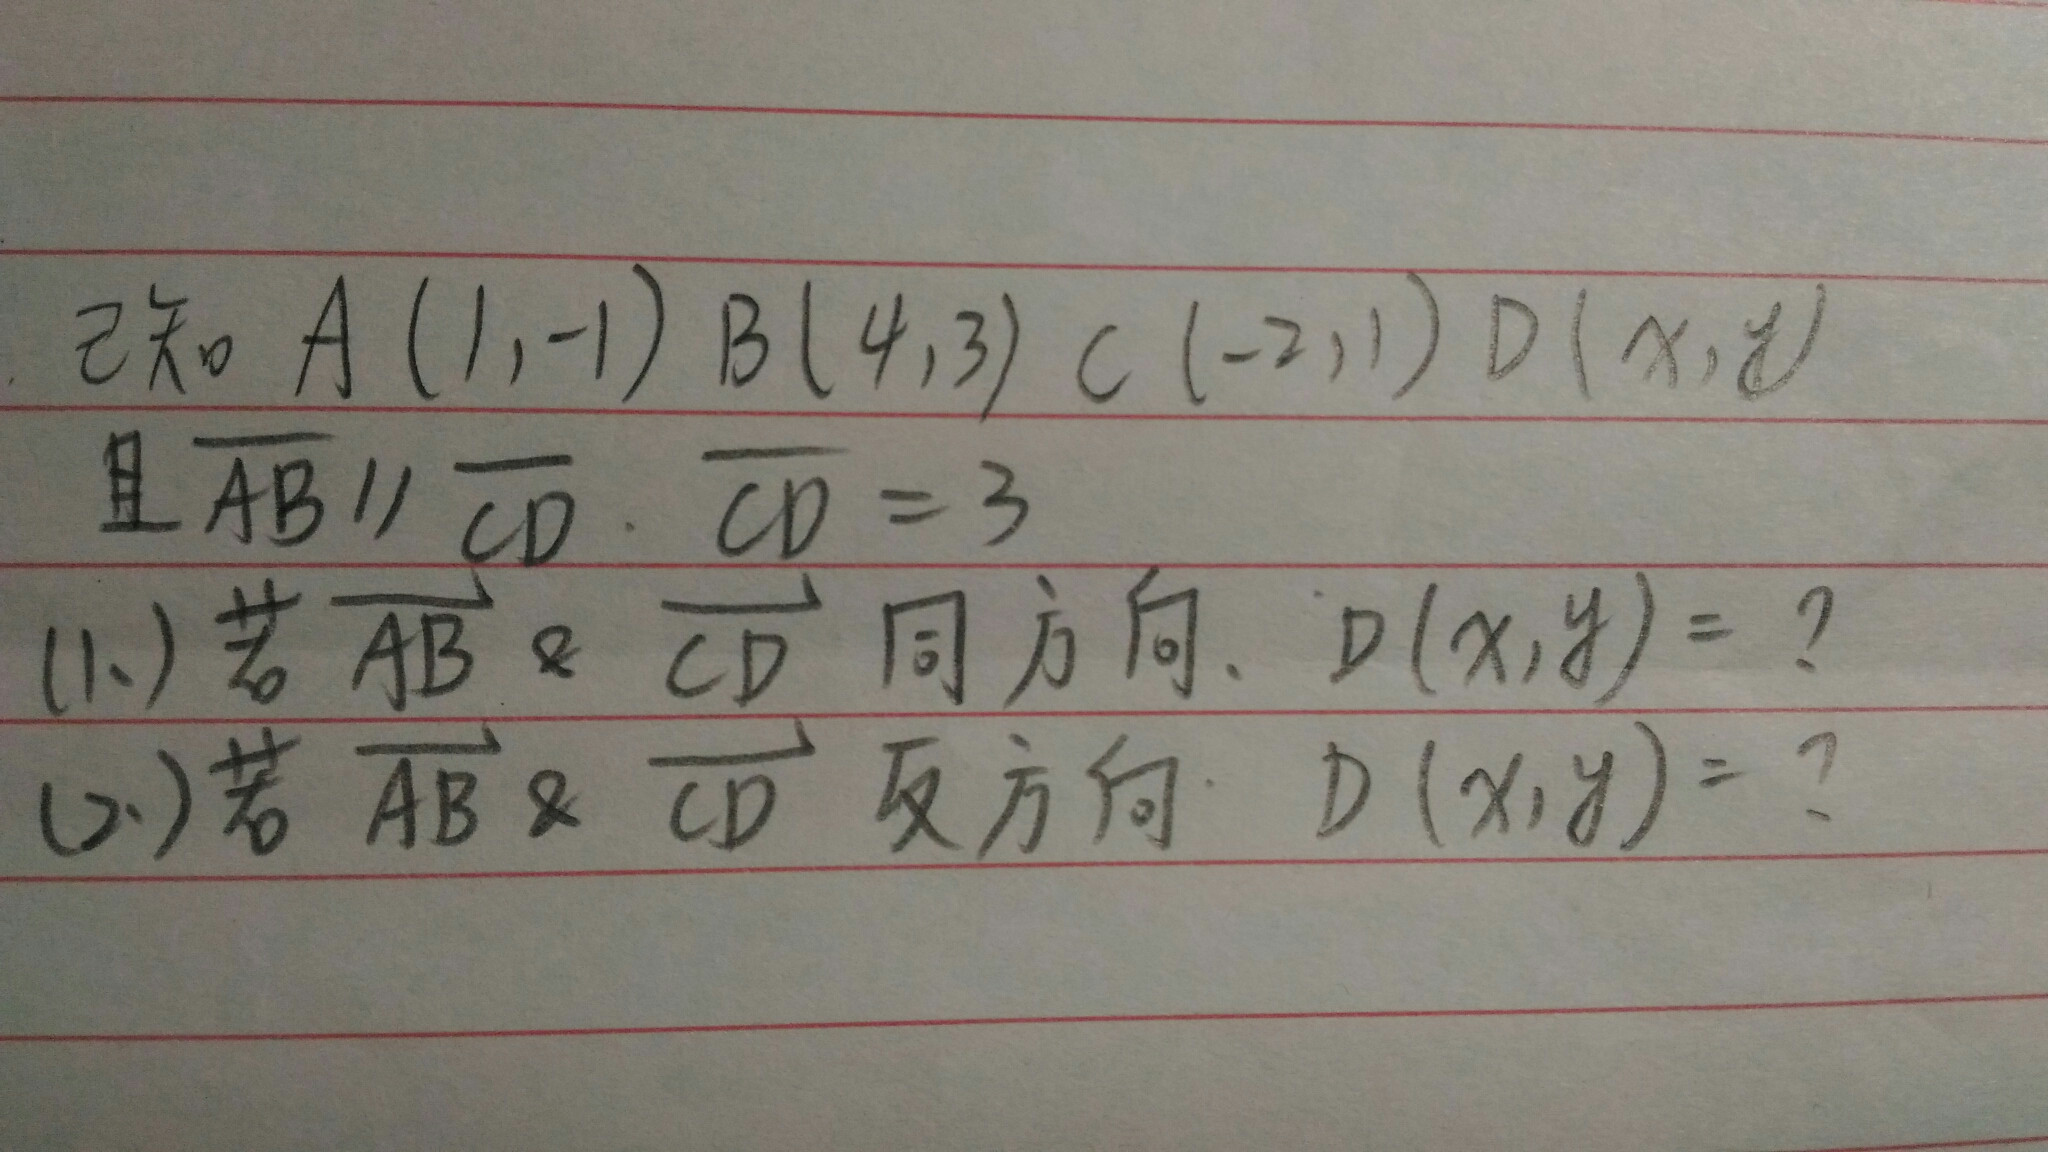 已知 A (1,-1) B(4,3) C (-2,1) D(x,y)
且 \overline{AB} // \overline{CD} . \overline{CD} = 3
(1.) 若 \overrightarrow{AB} & \overrightarrow{CD} 同方向. D(x,y) = ?
(2.) 若 \overrightarrow{AB} & \overrightarrow{CD} 反方向. D(x,y) = ?